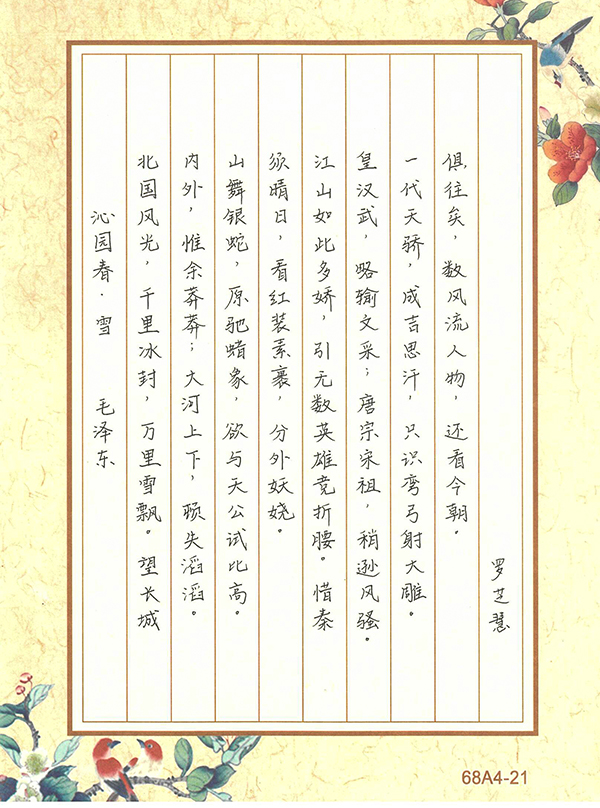 沁园春·雪 毛泽东
北国风光，千里冰封，万里雪飘。望长城
内外，惟余莽莽；大河上下，顿失滔滔。
山舞银蛇，原驰蜡象，欲与天公试比高。
须晴日，看红装素裹，分外妖娆。
江山如此多娇，引无数英雄竞折腰。惜秦
皇汉武，略输文采；唐宗宋祖，稍逊风骚。
一代天骄，成吉思汗，只识弯弓射大雕。
俱往矣，数风流人物，还看今朝。
罗芝慧
68A4-21